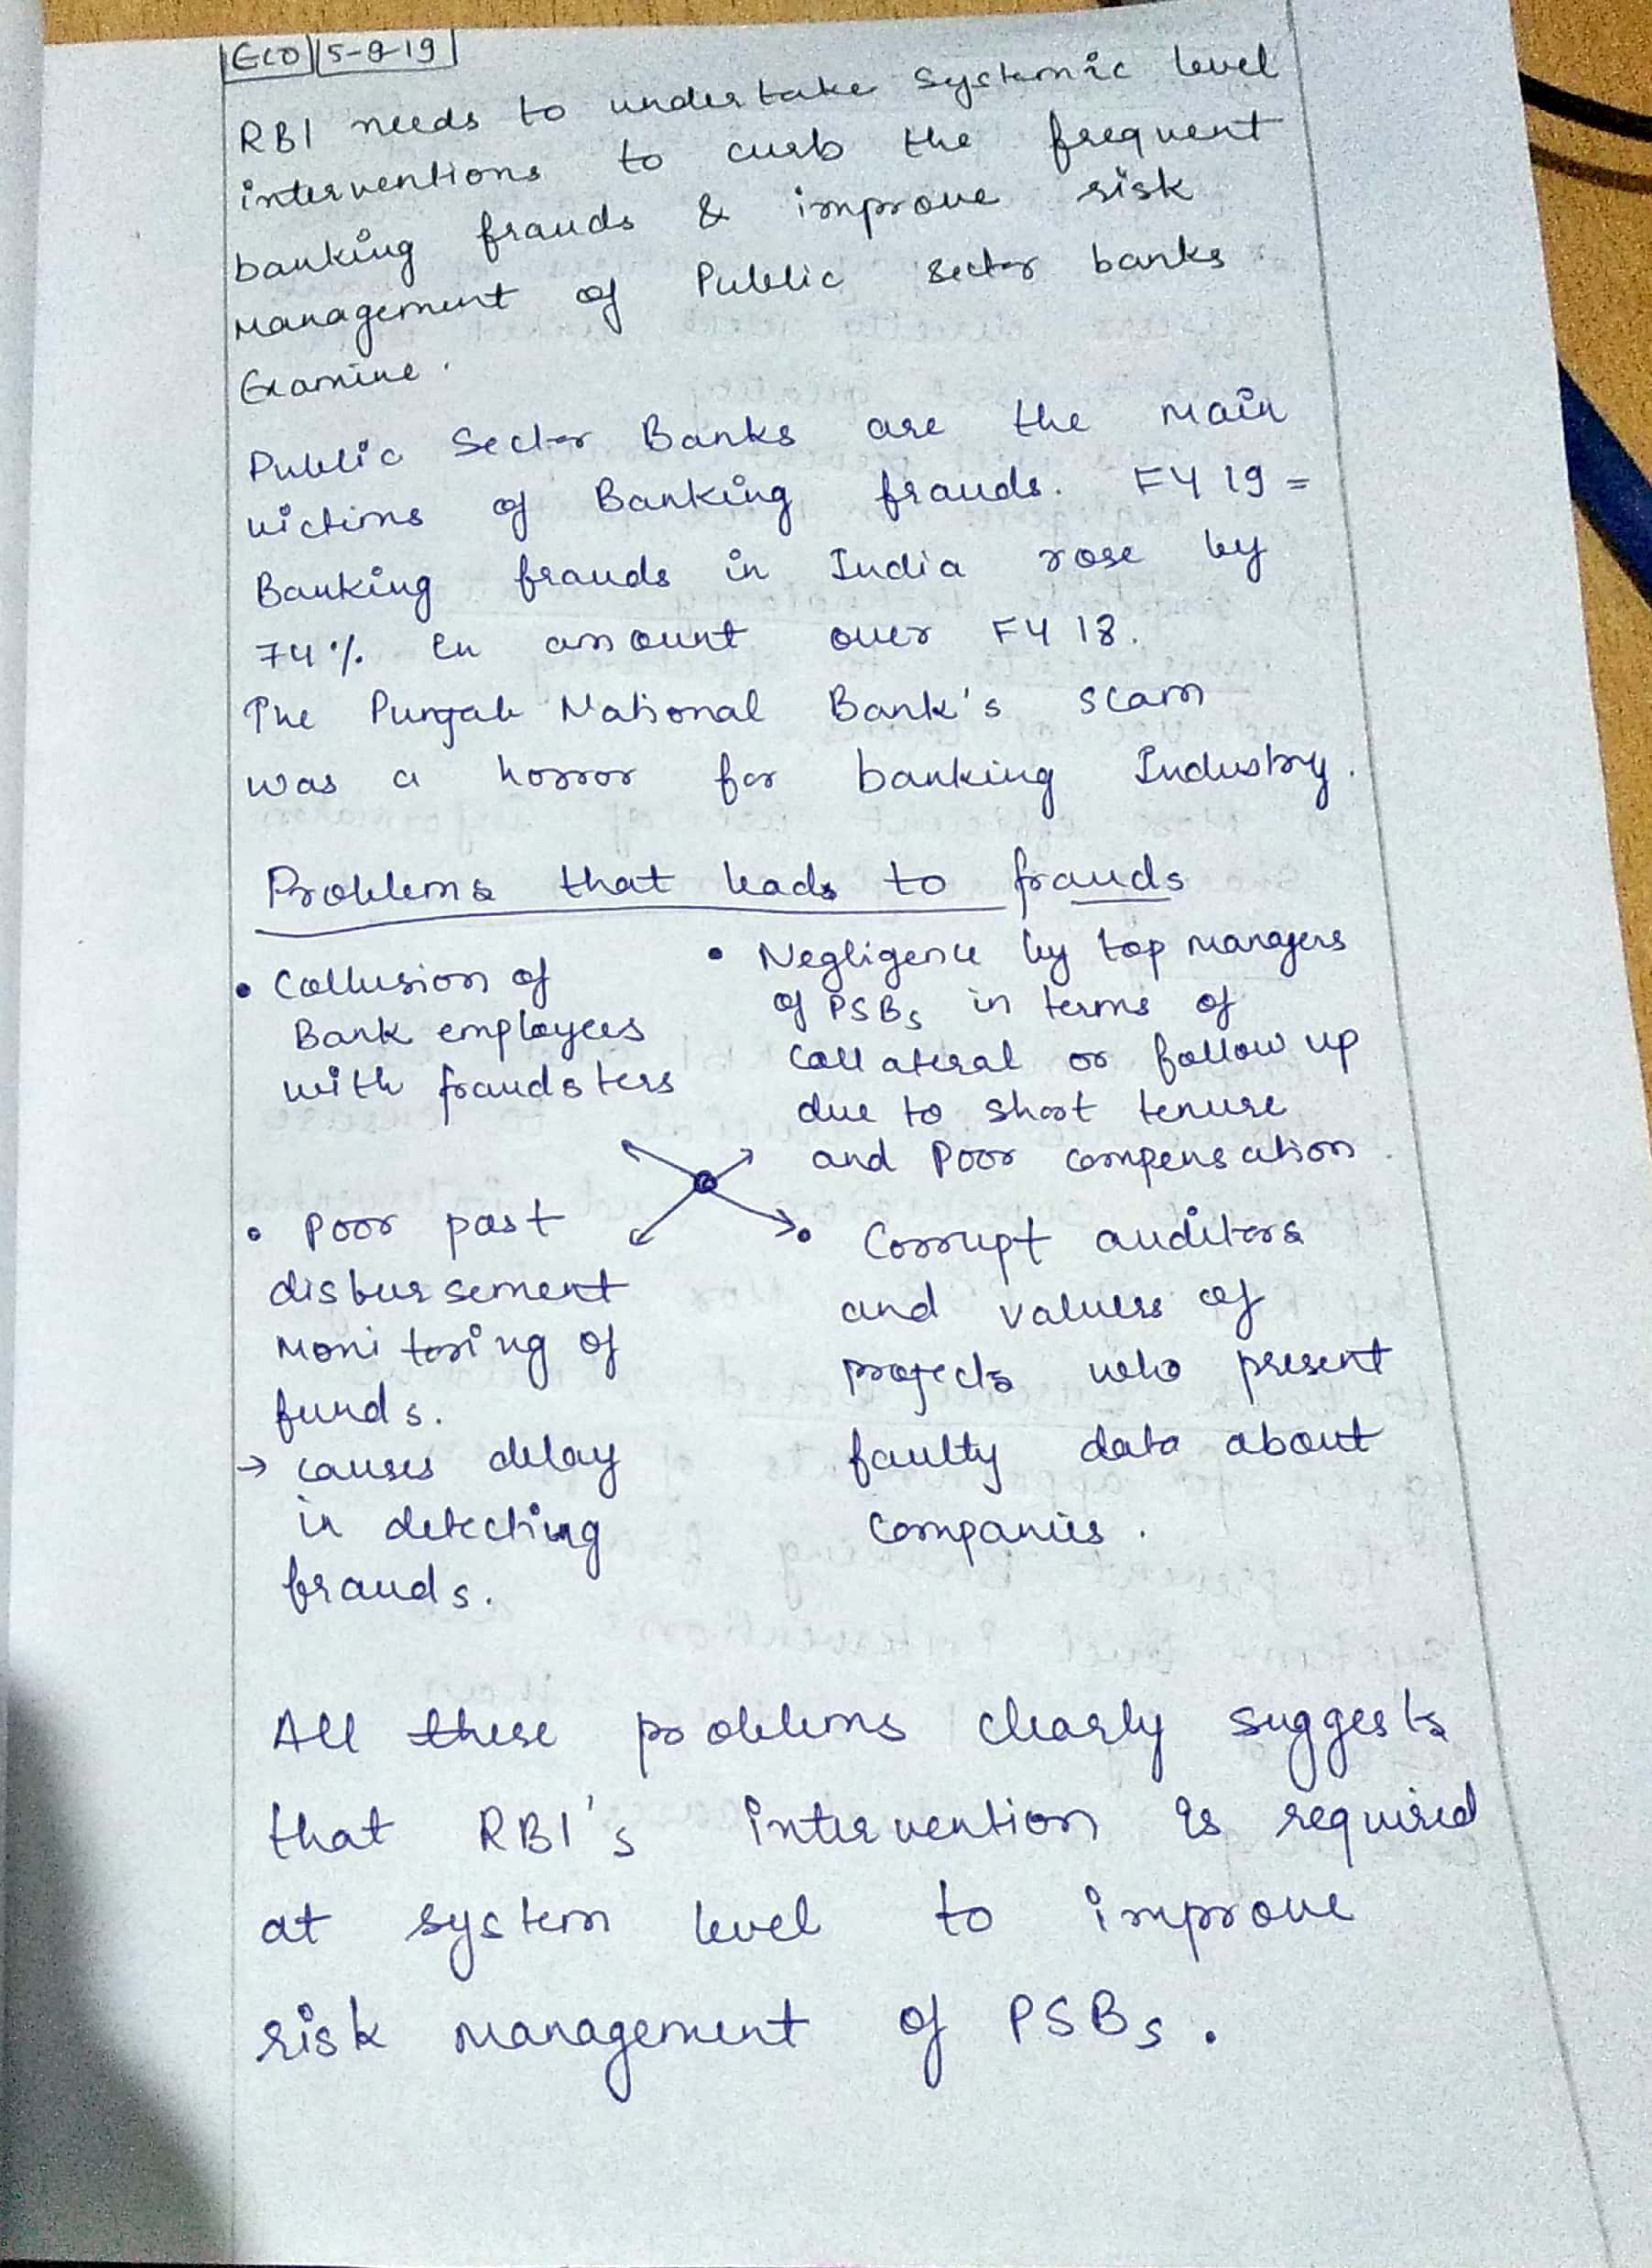 ECO 5-9-19
RBI needs to undertake systemic level
interventions to curb the frequent
banking frauds & improve risk
Management of Public sector banks.
Examine.
Public Sector Banks are the main
victims of Banking frauds. FY 19 =
Banking frauds in India rose by
74% in amount over FY 18.
The Punjab National Bank's scam
was a horror for banking Industry.
Problems that leads to frauds
• Collusion of
Bank employees
with fraudsters
• Negligence by top managers
of PSBs in terms of
collateral or follow up
due to short tenure
and Poor compensation.
• Poor post
disbursement
Monitoring of
funds.
→ causes delay
in detecting
frauds.
• Corrupt auditors
and valuers of
projects who present
faulty data about
companies.
All these problems clearly suggests
that RBI's intervention is required
at system level to improve
risk management of PSBs.